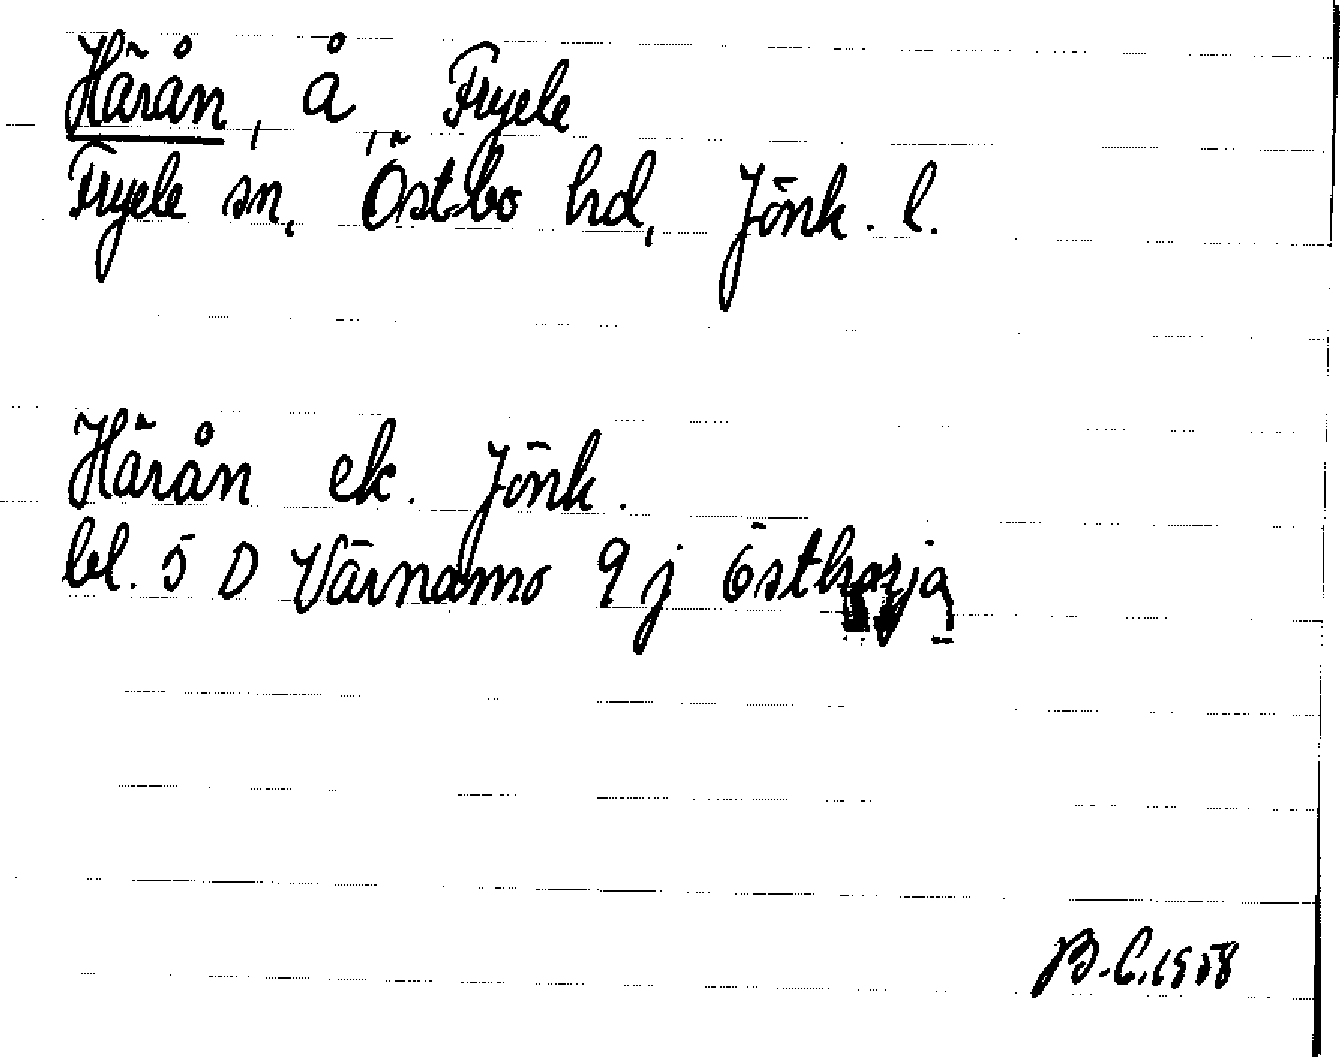 Härån, å, Fryele
Fryele sn, Östbo hd, Jönk. l.
Härån ek. Jönk.
bl. 5 D Värnamo 9 j
B.C. 1958